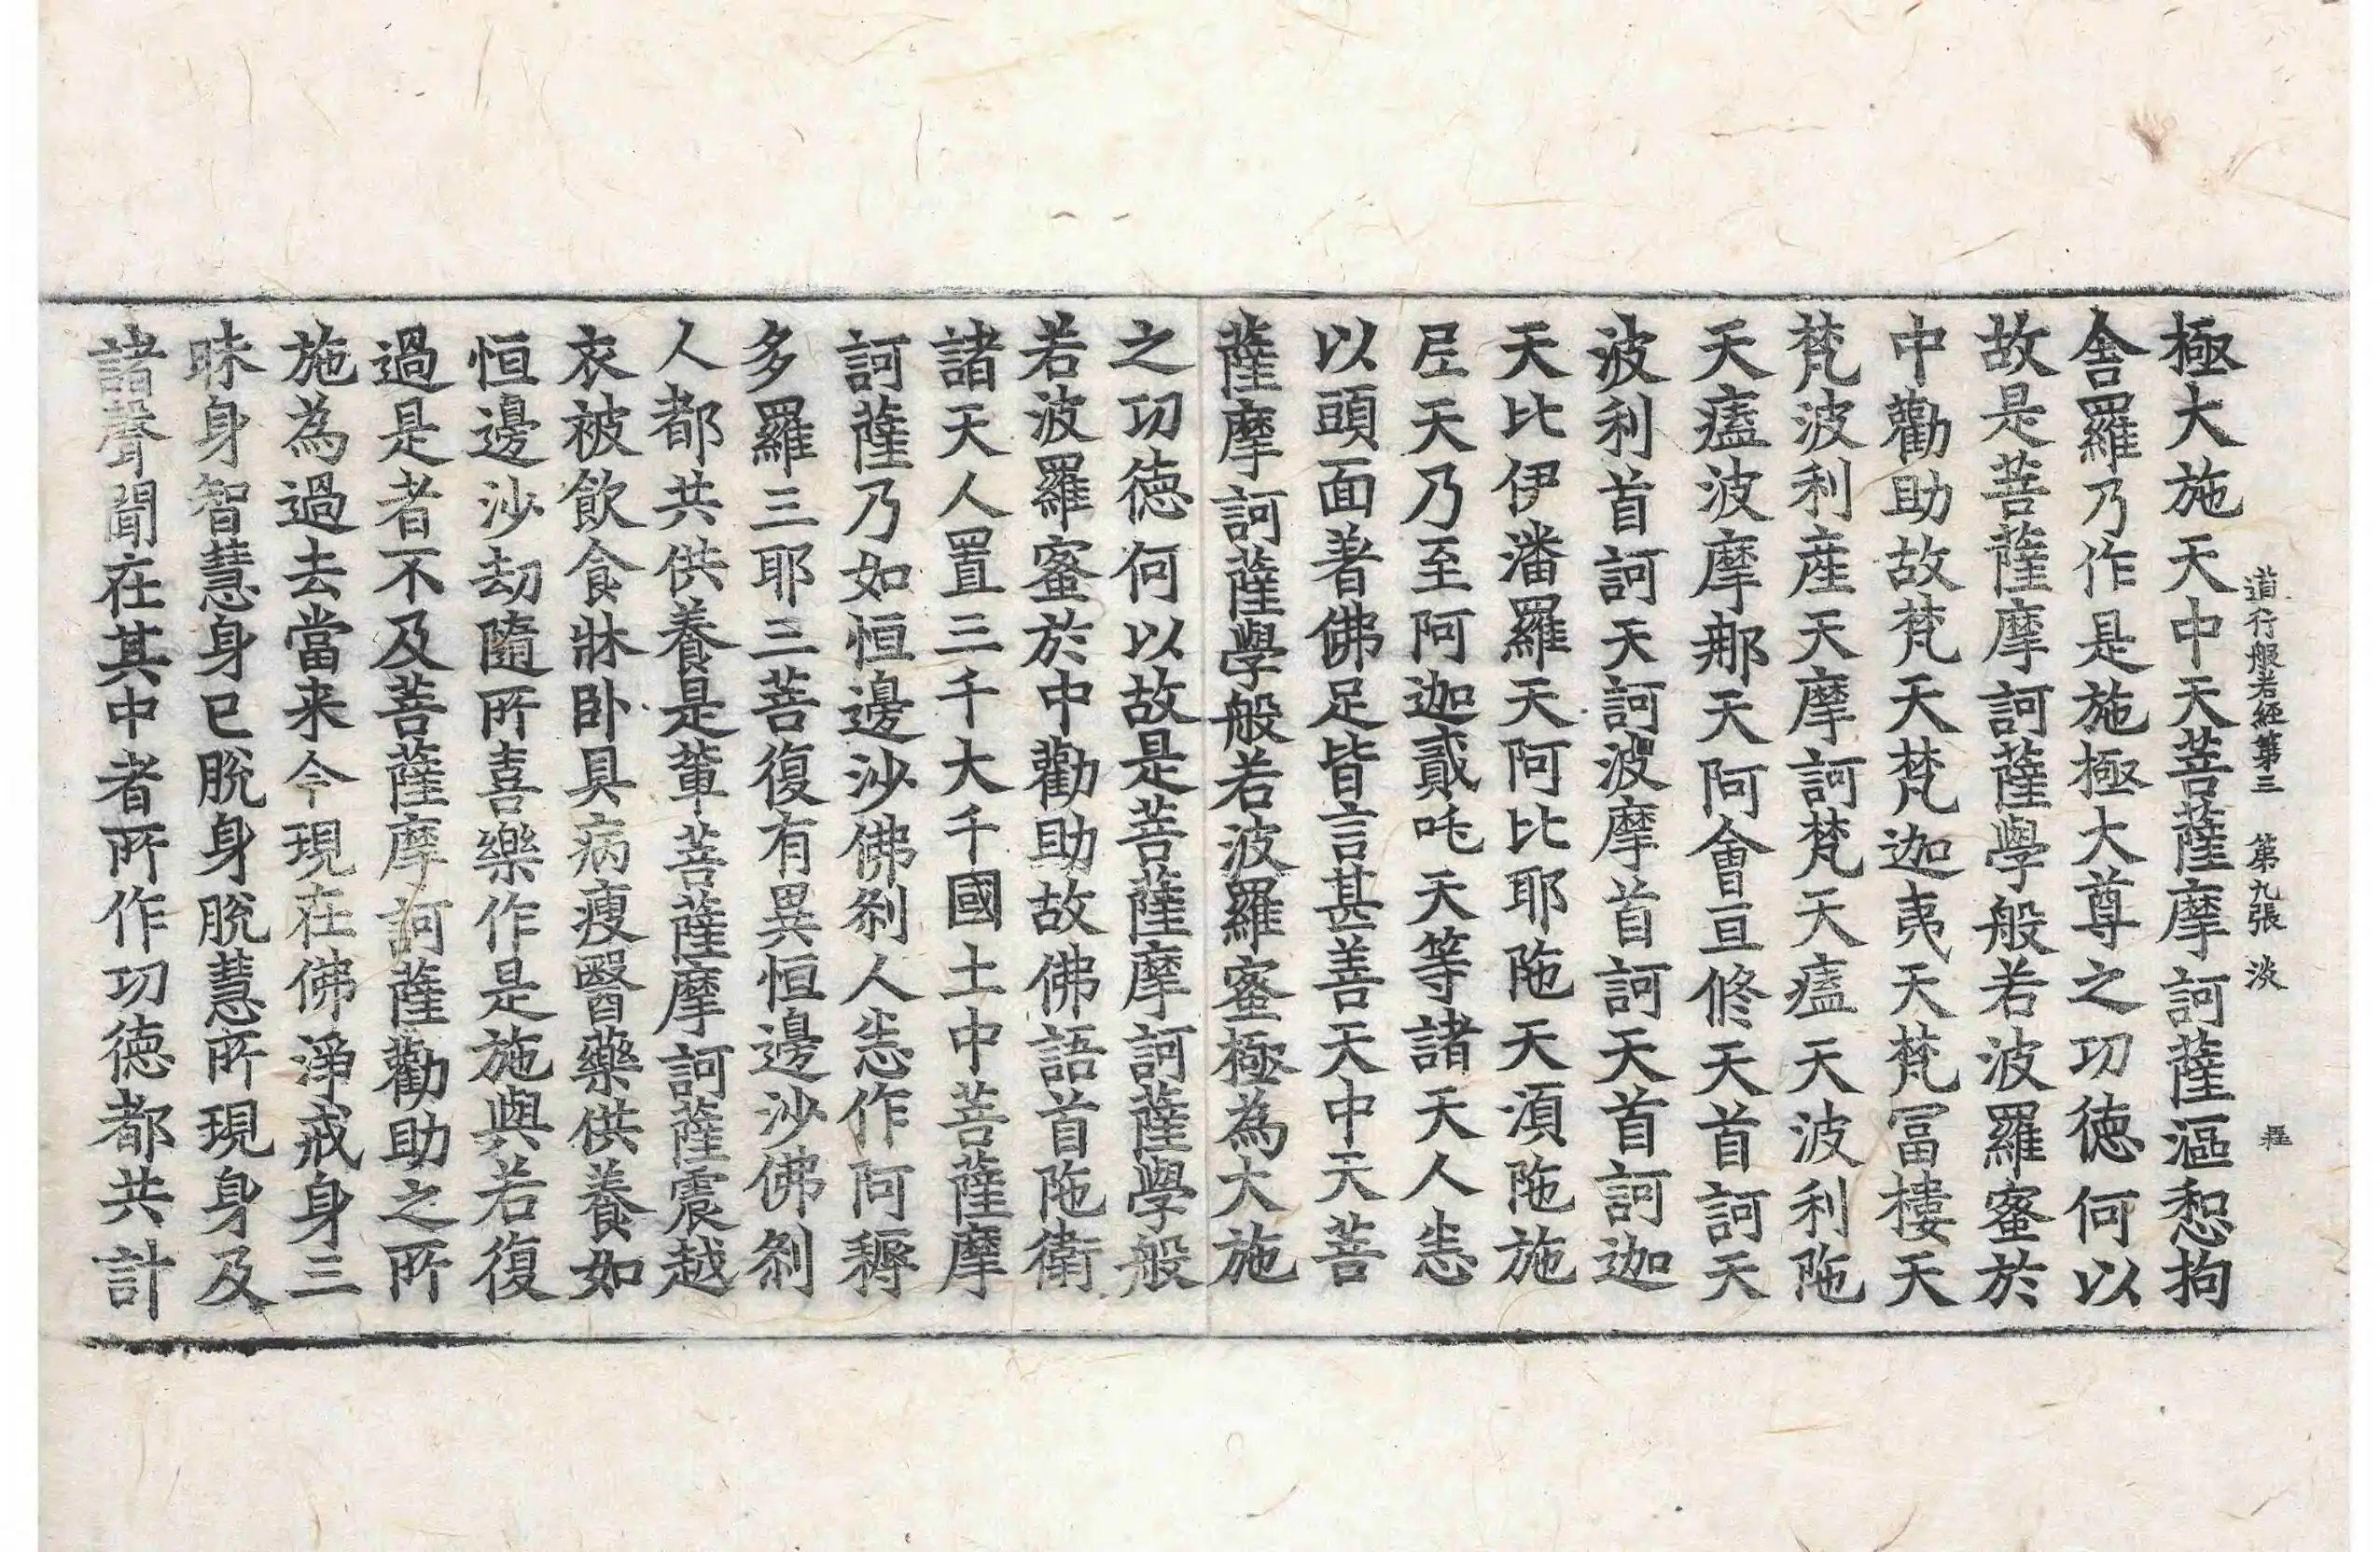 道行般若經第三 第九張 淡
極大施天中天菩薩摩訶薩漚惒拘
舍羅乃作是施極大尊之功德何以
故是菩薩摩訶薩學般若波羅蜜於
中勸助故梵天梵迦夷天梵冨樓天
梵波利産天摩訶梵天㿄天波利陁
天㿄波摩那天阿會亘修天首訶天
波利首訶天訶波摩首訶天首訶迦
天比伊潘羅天阿比耶陁天湏陁施
尼天乃至阿迦貳吒天等諸天人恚
以頭面著佛足皆言甚善天中天菩
薩摩訶薩學般若波羅蜜極為大施
之功德何以故是菩薩摩訶薩學般
若波羅蜜於中勸助故佛語首陁衛
諸天人置三千大千國土中菩薩摩
訶薩乃如恒邊沙佛刹人恚作阿耨
多羅三耶三菩復有異恒邊沙佛刹
人都共供養是輩菩薩摩訶薩震越
衣被飲食牀卧具病瘦醫藥供養如
恒邊沙劫隨所喜樂作是施與若復
過是者不及菩薩摩訶薩勸助之所
施為過去當来今現在佛淨戒身三
昧身智慧身已脫身脫慧所現身及
諸聲聞在其中者所作功德都共計